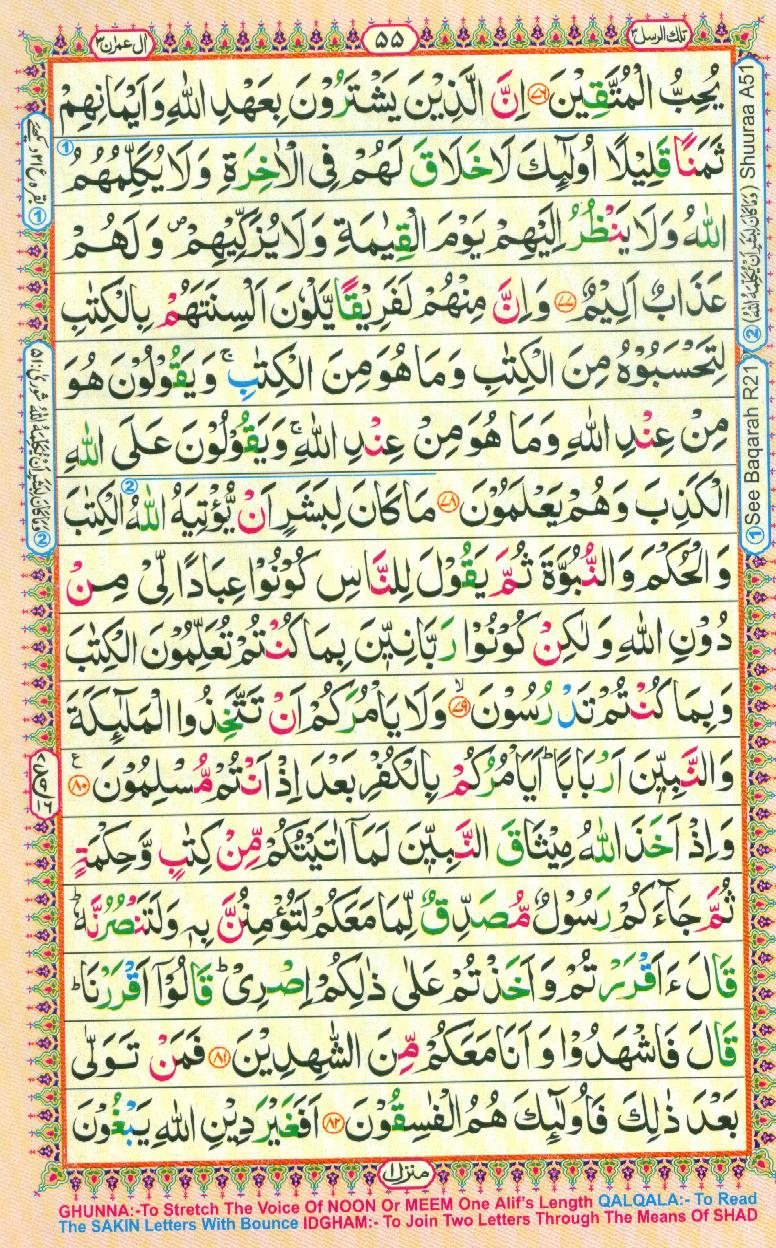 تلك الرسل ٣
۵۵
اٰل عمرٰن ٣
يُحِبُّ الْمُتَّقِيْنَ ۝٧٦ اِنَّ الَّذِيْنَ يَشْتَرُوْنَ بِعَهْدِ اللّٰهِ وَاَيْمَانِهِمْ
ثَمَنًا قَلِيْلًا اُولٰٓئِكَ لَا خَلَاقَ لَهُمْ فِى الْاٰخِرَةِ وَلَا يُكَلِّمُهُمُ
اللّٰهُ وَلَا يَنْظُرُ اِلَيْهِمْ يَوْمَ الْقِيٰمَةِ وَلَا يُزَكِّيْهِمْ ۖ وَلَهُمْ
عَذَابٌ اَلِيْمٌ ۝٧٧ وَاِنَّ مِنْهُمْ لَفَرِيْقًا يَّلْوٗنَ اَلْسِنَتَهُمْ بِالْكِتٰبِ
لِتَحْسَبُوْهُ مِنَ الْكِتٰبِ وَمَا هُوَ مِنَ الْكِتٰبِ ۚ وَيَقُوْلُوْنَ هُوَ
مِنْ عِنْدِ اللّٰهِ وَمَا هُوَ مِنْ عِنْدِ اللّٰهِ ۚ وَيَقُوْلُوْنَ عَلَى اللّٰهِ
الْكَذِبَ وَهُمْ يَعْلَمُوْنَ ۝٧٨ مَا كَانَ لِبَشَرٍ اَنْ يُّؤْتِيَهُ اللّٰهُ الْكِتٰبَ
وَالْحُكْمَ وَالنُّبُوَّةَ ثُمَّ يَقُوْلَ لِلنَّاسِ كُوْنُوْا عِبَادًا لِّىْ مِنْ
دُوْنِ اللّٰهِ وَلٰكِنْ كُوْنُوْا رَبَّانِيّٖنَ بِمَا كُنْتُمْ تُعَلِّمُوْنَ الْكِتٰبَ
وَبِمَا كُنْتُمْ تَدْرُسُوْنَ ۙ۝٧٩ وَلَا يَاْمُرَكُمْ اَنْ تَتَّخِذُوا الْمَلٰٓئِكَةَ
وَالنَّبِيّٖنَ اَرْبَابًا ؕ اَيَاْمُرُكُمْ بِالْكُفْرِ بَعْدَ اِذْ اَنْتُمْ مُّسْلِمُوْنَ ۝٨٠ ع
وَاِذْ اَخَذَ اللّٰهُ مِيْثَاقَ النَّبِيّٖنَ لَمَاۤ اٰتَيْتُكُمْ مِّنْ كِتٰبٍ وَّحِكْمَةٍ
ثُمَّ جَآءَكُمْ رَسُوْلٌ مُّصَدِّقٌ لِّمَا مَعَكُمْ لَتُؤْمِنُنَّ بِهٖ وَلَتَنْصُرُنَّهٗ ؕ
قَالَ ءَاَقْرَرْتُمْ وَاَخَذْتُمْ عَلٰى ذٰلِكُمْ اِصْرِىْ ؕ قَالُوْۤا اَقْرَرْنَا ؕ
قَالَ فَاشْهَدُوْا وَاَنَا مَعَكُمْ مِّنَ الشّٰهِدِيْنَ ۝٨١ فَمَنْ تَوَلّٰى
بَعْدَ ذٰلِكَ فَاُولٰٓئِكَ هُمُ الْفٰسِقُوْنَ ۝٨٢ اَفَغَيْرَ دِيْنِ اللّٰهِ يَبْغُوْنَ
منزل ١
② (وَمَا كَانَ لِبَشَرٍ اَنْ يُّكَلِّمَهُ اللّٰهُ) Shuuraa A51
① See Baqarah R21
② وَمَا كَانَ لِبَشَرٍ اَنْ يُّكَلِّمَهُ اللّٰهُ شورىٰ: ۵۱
GHUNNA:-To Stretch The Voice Of NOON Or MEEM One Alif's Length QALQALA:- To Read
The SAKIN Letters With Bounce IDGHAM:- To Join Two Letters Through The Means Of SHAD